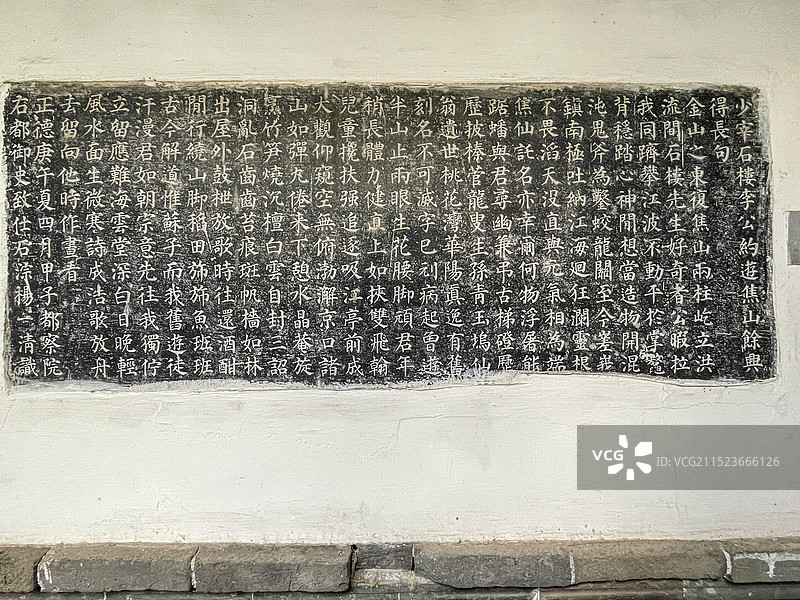 少宰石樓李公約遊焦山餘興
得長句
金山之東復焦山兩柱屹立洪
流間石樓先生好奇者公暇拉
我同躋攀江波不動平於掌
背穩踏心神閒想當造物開混
沌鬼斧為鑿蛟龍關至今
鎮南極吐納江海迴狂瀾靈根
不畏滔天沒直與元氣相為端
焦仙託名亦幸爾何物浮屠能
踞蟠與君尋幽兼弔古梯磴歷
歷披榛菅龍叟生孫青玉塢仙
翁遺世桃花灣華陽眞逸有舊
刻名不可滅字已刓病起曽遊
半山止兩眼生花腰脚頑君年
稍長體力健直上如挾雙飛翰
兒童攙扶强追逐吸江亭前成
大觀仰窺空無俯渤澥京口諸
山如彈丸倦来下憩水晶菴旋
蒸竹笋燒沉檀白雲自封三詔
洞亂石齒齒苔痕斑帆檣如林
出屋外鼓枻放歌時往還酒酣
閒行繞山脚稻田旆旆魚班班
古今解道惟蘇子而我舊遊徒
汗漫君如朝宗意先往我獨佇
立應難海雲堂深白日晚輕
風水面生微寒詩成浩歌放舟
去留向他時作畫看
正德庚午夏四月甲子都察院
右都御史致仕石淙楊一清識
VCG
ID:VCG211523666126